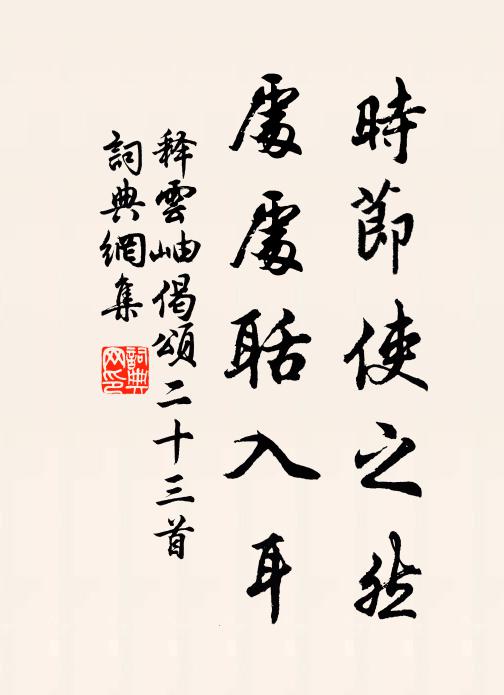 時節使之然
處處聒入耳
釋雲岫偈頌二十三首
詞典網集
詞典網印